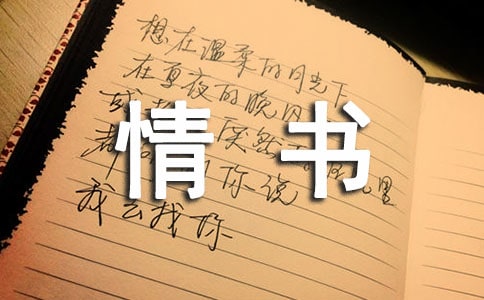 想在温柔的月光下
在夏夜的晚
或 突然 里
都 你说
我去找你
情书